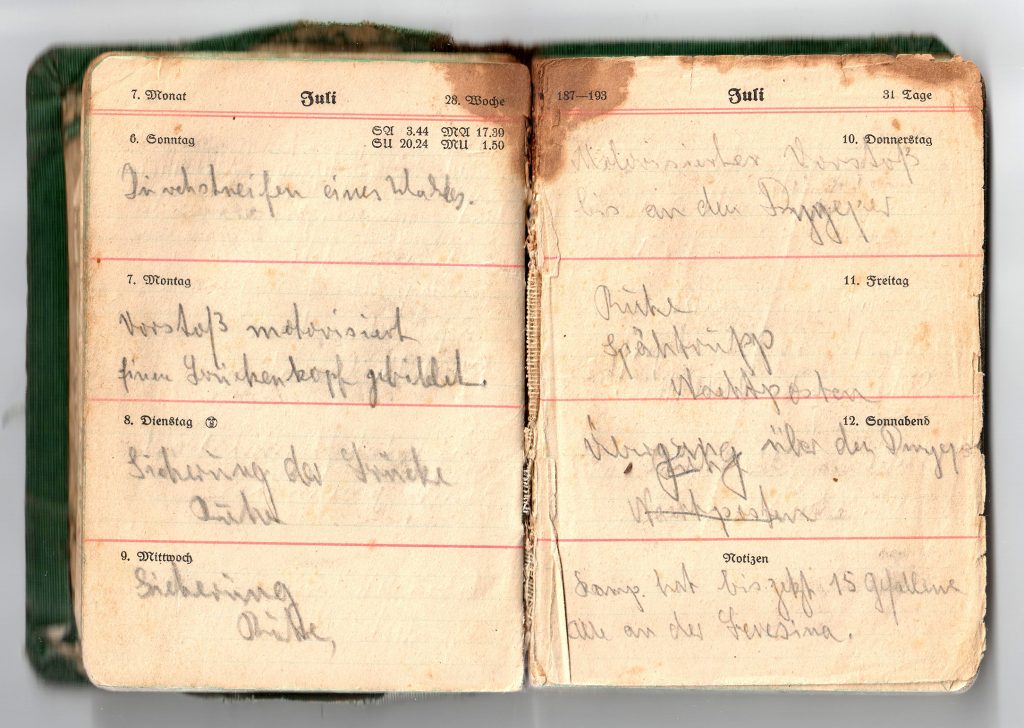 7. Monat Juli 28. Woche
6. Sonntag SA 3.44 MA 17.39
SU 20.24 MU 1.50
Durchstreifen eines Waldes.
7. Montag
Vorstoß motorisiert
einen Brückenkopf gebildet.
8. Dienstag
Sicherung der Brücke
Ruhe
9. Mittwoch
Sicherung
Ruhe,
187—193 Juli 31 Tage
10. Donnerstag
Motorisierter Vorstoß
bis an den
11. Freitag
Ruhe
Spähtrupp
Nachtposten
12. Sonnabend
Übergang über den
Nachtposten
Notizen
Komp. hat bis jetzt 15 Gefallene
alle an der Beresina.